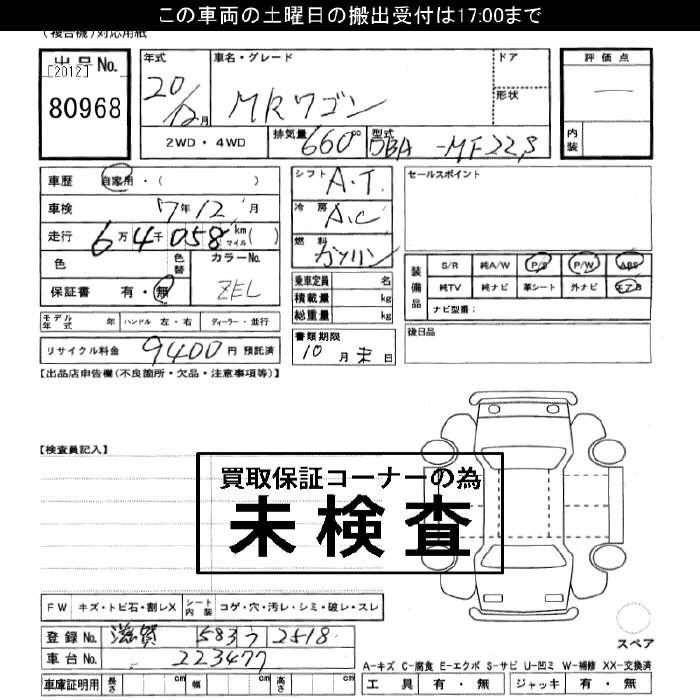 この車両の土曜日の搬出受付は17:00まで
(複合機)対応用紙
出品No.
[2012]
80968
年式
20/12月
車名・グレード
MRワゴン
ドア
形状
2WD・4WD
排気量
660cc
型式
DBA-MF22S
評価点
内装
車歴 自家用・( )
車検 7年12月
走行 6万4千058km マイル( )
色
色替
カラーNo.
ZEL
保証書 有・無
モデル年式 年 ハンドル 左・右 ディーラー・並行
リサイクル料金 9400円 預託済
シフト A.T.
冷房 A.C
燃料 ガソリン
乗車定員 名
積載量 kg
総重量 kg
書類期限
10月末日
セールスポイント
装備品
S/R 純A/W P/S P/W ABS
純TV 純ナビ 革シート 外ナビ エアB
ナビ型番:
後日品
【出品店申告欄(不良箇所・欠品・注意事項等)】
【検査員記入】
買取保証コーナーの為
未検査
FW キズ・トビ石・割レX シート内装 コゲ・穴・汚レ・シミ・破レ・スレ
登録No. 滋賀 583 う 2518
車台No. 223477
車庫証明用 長さ cm 幅 cm 高さ cm
スペア
A-キズ C-腐食 E-エクボ S-サビ U-凹ミ W-補修 XX-交換済
工具 有・無 ジャッキ 有・無